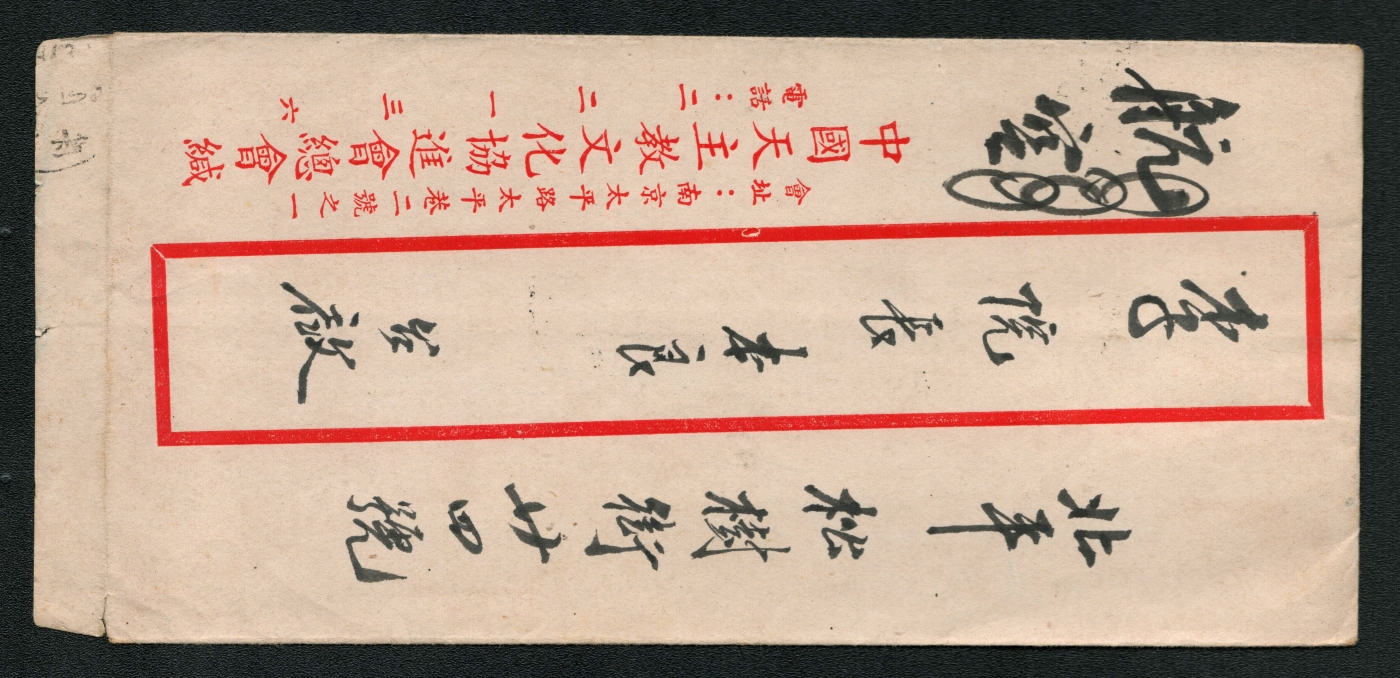 北平松樹街廿四號
李院長 良 台啟
會址：南京太平路太平巷二號之一
中國天主教文化協進會總會緘
電話：二二一三六
航空